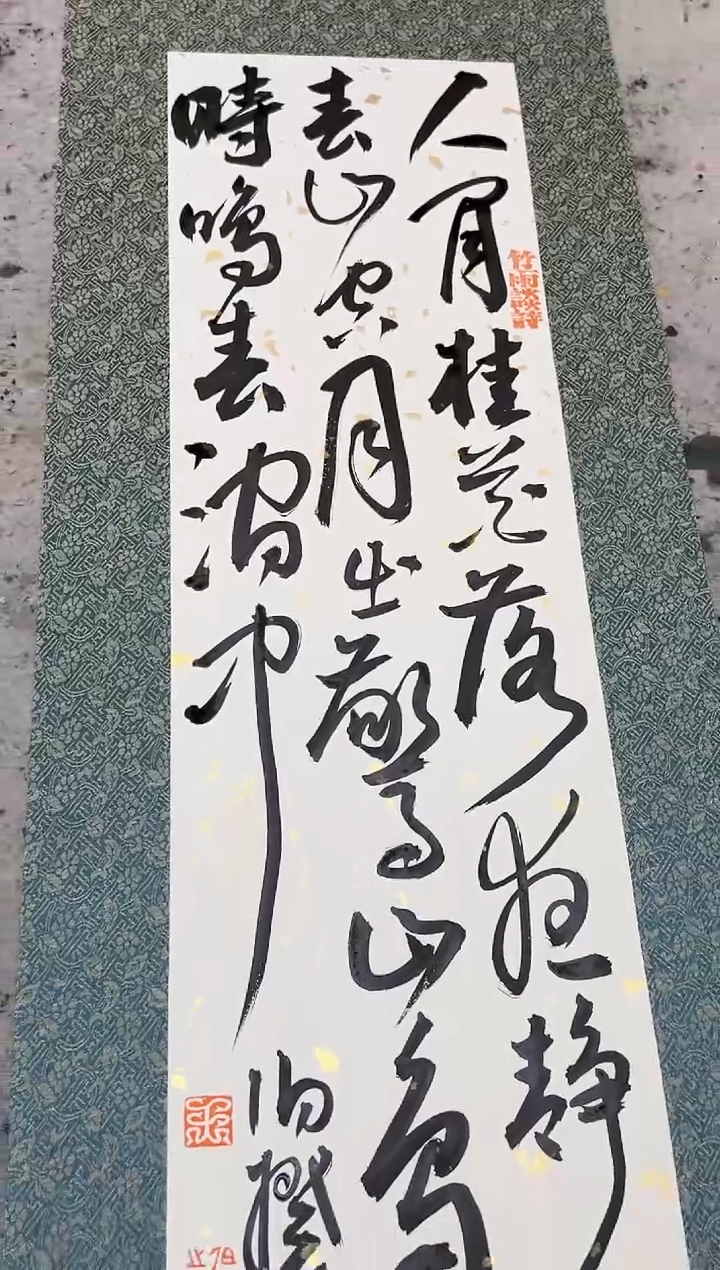 人閒桂花落夜静
竹雨談詩
春山空月出驚山鳥
時鳴春澗中